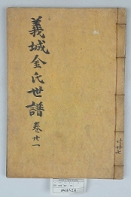 義城金氏世譜
卷廿一